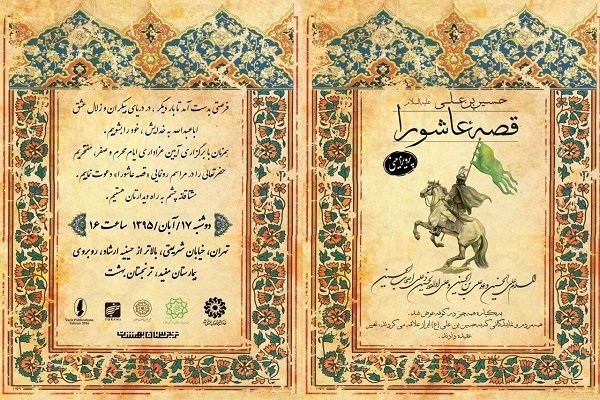 حسین بن علی علیه‌السلام
قصه عاشورا
السلام علی الحسین و علی علی بن الحسین و علی اولاد الحسین و علی اصحاب الحسین
به یکباره همه چیز در کوفه عوض شد.
فرصتی بدست آمد تا بار دیگر، در دریای بیکران و زلال عشق
اباعبدالله به خدایش، خود را بشویم.
همزمان با برگزاری آیین عزاداری ایام محرم و صفر، مفتخریم
حضرتعالی را در مراسم رونمایی «قصه عاشورا» دعوت نماییم.
مشتاقانه چشم به راه دیدارتان هستیم.
دوشنبه ۱۷/آبان/۱۳۹۵ ساعت ۱۶
تهران، خیابان شریعتی، بالاتر از حسینیه ارشاد، روبروی
بیمارستان مفید، ترنجستان بهشت